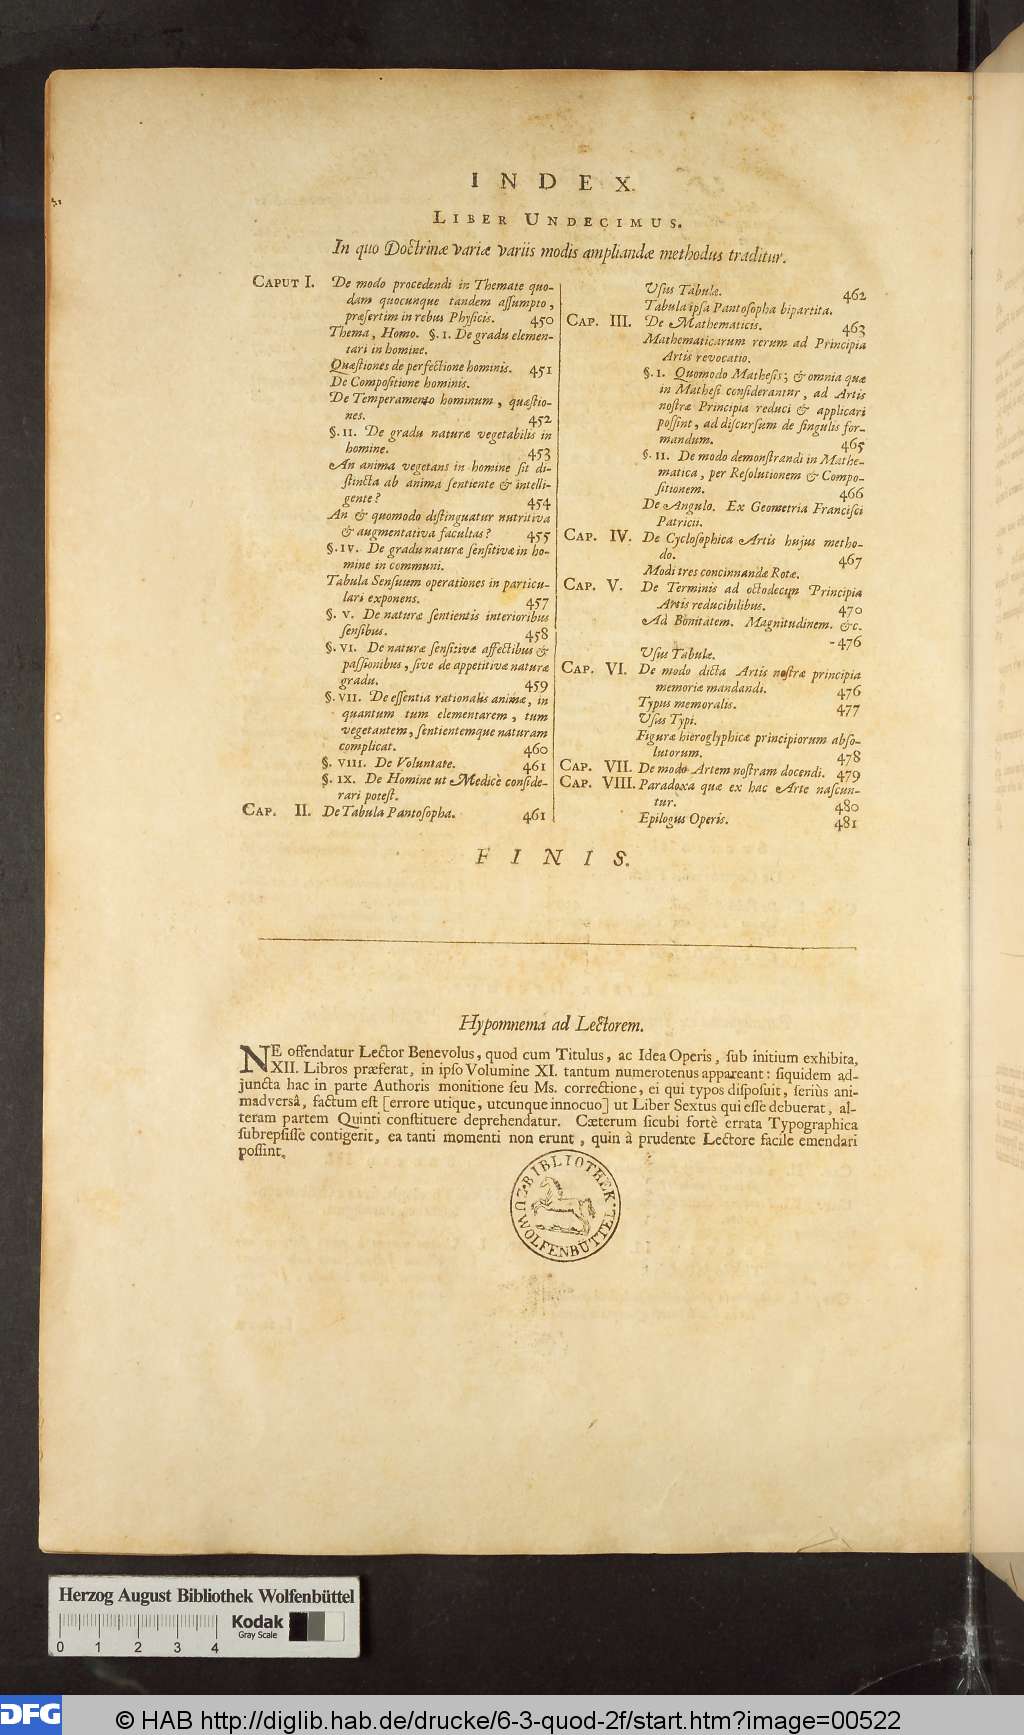 INDEX.
LIBER UNDECIMUS.
In quo Doctrinæ variæ variis modis ampliandæ methodus traditur.
CAPUT I. De modo procedendi in Themate quo-
dam quocunque tandem assumpto,
præsertim in rebus Physicis. 450
Thema, Homo. §. I. De gradu elemen-
tari in homine.
Quæstiones de perfectione hominis. 451
De Compositione hominis.
De Temperamento hominum, quæstio-
nes. 452
§. II. De gradu naturæ vegetabilis in
homine. 453
An anima vegetans in homine sit di-
stincta ab anima sentiente & intelli-
gente? 454
An & quomodo distinguatur nutritiva
& augmentativa facultas? 455
§. IV. De gradu naturæ sensitivæ in ho-
mine in communi.
Tabula Sensuum operationes in particu-
lari exponens. 457
§. V. De naturæ sentientis interioribus
sensibus. 458
§. VI. De naturæ sensitivæ affectibus &
passionibus, sive de appetitivæ naturæ
gradu. 459
§. VII. De essentia rationalis animæ, in
quantum tum elementarem, tum
vegetantem, sentientemque naturam
complicat. 460
§. VIII. De Voluntate. 461
§. IX. De Homine ut Medicè conside-
rari potest.
CAP. II. De Tabula Pantosopha. 461
Usus Tabulæ. 462
Tabula ipsa Pantosopha bipartita.
CAP. III. De Mathematicis. 463
Mathematicarum rerum ad Principia
Artis revocatio.
§. I. Quomodo Mathesis; & omnia quæ
in Mathesi considerantur, ad Artis
nostræ Principia reduci & applicari
possint, ad discursum de singulis for-
mandum. 465
§. II. De modo demonstrandi in Mathe-
matica, per Resolutionem & Compo-
sitionem. 466
De Angulo. Ex Geometria Francisci
Patricii.
CAP. IV. De Cyclosophica Artis hujus metho-
do. 467
Modi tres concinnandæ Rotæ.
CAP. V. De Terminis ad octodecim Principia
Artis reducibilibus. 470
Ad Bonitatem. Magnitudinem. &c.
- 476
Usus Tabulæ.
CAP. VI. De modo dicta Artis nostræ principia
memoriæ mandandi. 476
Typus memorialis. 477
Usus Typi.
Figuræ hieroglyphicæ principiorum abso-
lutorum. 478
CAP. VII. De modo Artem nostram docendi. 479
CAP. VIII. Paradoxa quæ ex hac Arte nascun-
tur. 480
Epilogus Operis. 481
FINIS.
Hypomnema ad Lectorem.
NE offendatur Lector Benevolus, quod cum Titulus, ac Idea Operis, sub initium exhibita,
XII. Libros præferat, in ipso Volumine XI. tantum numerotenus appareant: siquidem ad-
juncta hac in parte Authoris monitione seu Ms. correctione, ei qui typos disposuit, seriùs ani-
madversâ, factum est [errore utique, utcunque innocuo] ut Liber Sextus qui esse debuerat, al-
teram partem Quinti constituere deprehendatur. Cæterum sicubi fortè errata Typographica
subrepsisse contigerit, ea tanti momenti non erunt, quin à prudente Lectore facile emendari
possint.
BIBLIOTHEK
ZU WOLFENBÜTTEL
Herzog August Bibliothek Wolfenbüttel
Kodak
Gray Scale
0 1 2 3 4
DFG
© HAB http://diglib.hab.de/drucke/6-3-quod-2f/start.htm?image=00522